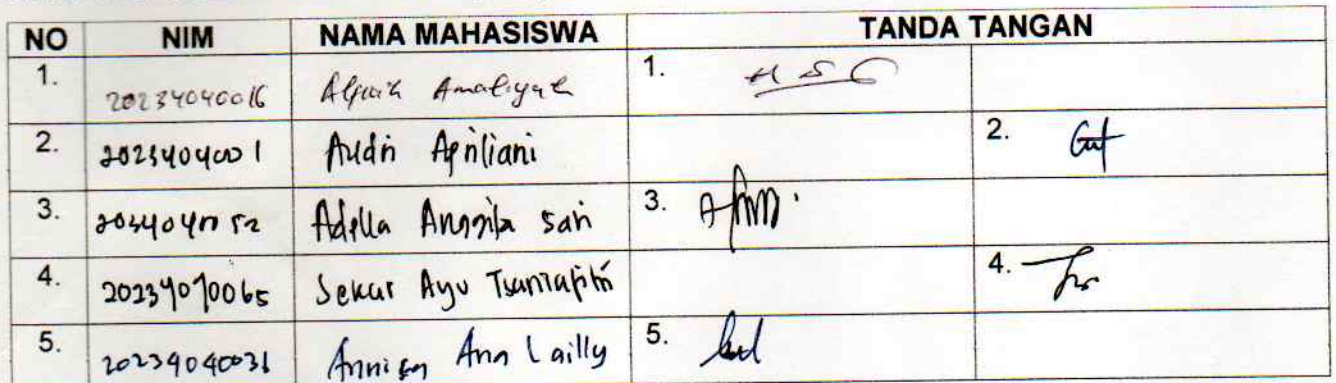 NO NIM NAMA MAHASISWA TANDA TANGAN
1. 20234040016 Amaliyah 1.
2. 20234040001 Audri Apriliani 2.
3. Adella Anggita Sari 3.
4. 20234070065 Sekar Ayu 4.
5. 20234040031 Annisa Ana Lailly 5.